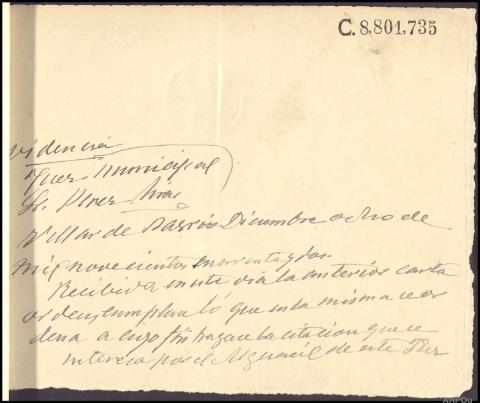 C. 8,801,735
videncia
Juez Municipal
Sr. Perez
Villar de Barrio Diciembre ocho de
mil novecientos cuarenta y dos.
Recibida en este dia la anterior carta
orden, cumplase lo que en la misma se or
dena a cuyo fin hagase la citacion que se
interesa por el Alguacil de este Juz